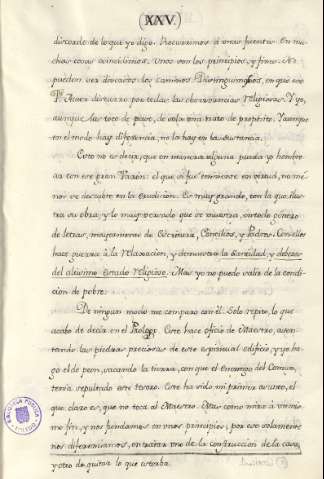 (XXV.)
discorde de lo que yo digo. Recurrimos à otras fuentes. En mu-
chas cosas coincidimos. Unos son los principios, y fines. No
pueden ser diversos los caminos. Distinguimos, en que ese
P.e discurre por todas las observancias Religiosas. Y yo,
aunque las toco de paso, de sola una trato de proposito. Y aunque
en el modo hay diferencia, no la hay en la sustancia.
Esto no es decir, que en manera alguna pueda yo hombrear
con ese gran Varon. El que si fue eminente en virtud, no me-
nos se descubre en la erudicion. Es muy grande, con la que ilus-
tra su obra, y lo muy versado que se muestra, en todo género
de letras, mayormente de Escritura, Concilios, y Padres. Con ellos
hace guerra à la Relaxacion, y demuestra la Santidad, y deberes
del altisimo Estado religioso. Mas yo no puedo salir de la condi-
cion de pobre.
De ningun modo me comparo con él. Solo repito, lo que
acabo de decir en el Prologo. Este hace oficio de Maestro, asen-
tando las piedras preciosas de este espiritual edificio, y yo ha-
go el de peon, sacando la tierra, con que el enemigo del Comun,
tenia sepultado este tesoro. Este ha sido mi primer asunto, el
que claro es, que no toca al Maestro. Mas como miro à un mismo
fin, y nos fundamos en unos principios, por eso solamente
nos diferenciamos, en tratar uno de la construccion de la casa,
y otro de quitar lo que estorba.
BIBLIOTECA PUBLICA
TOLEDO